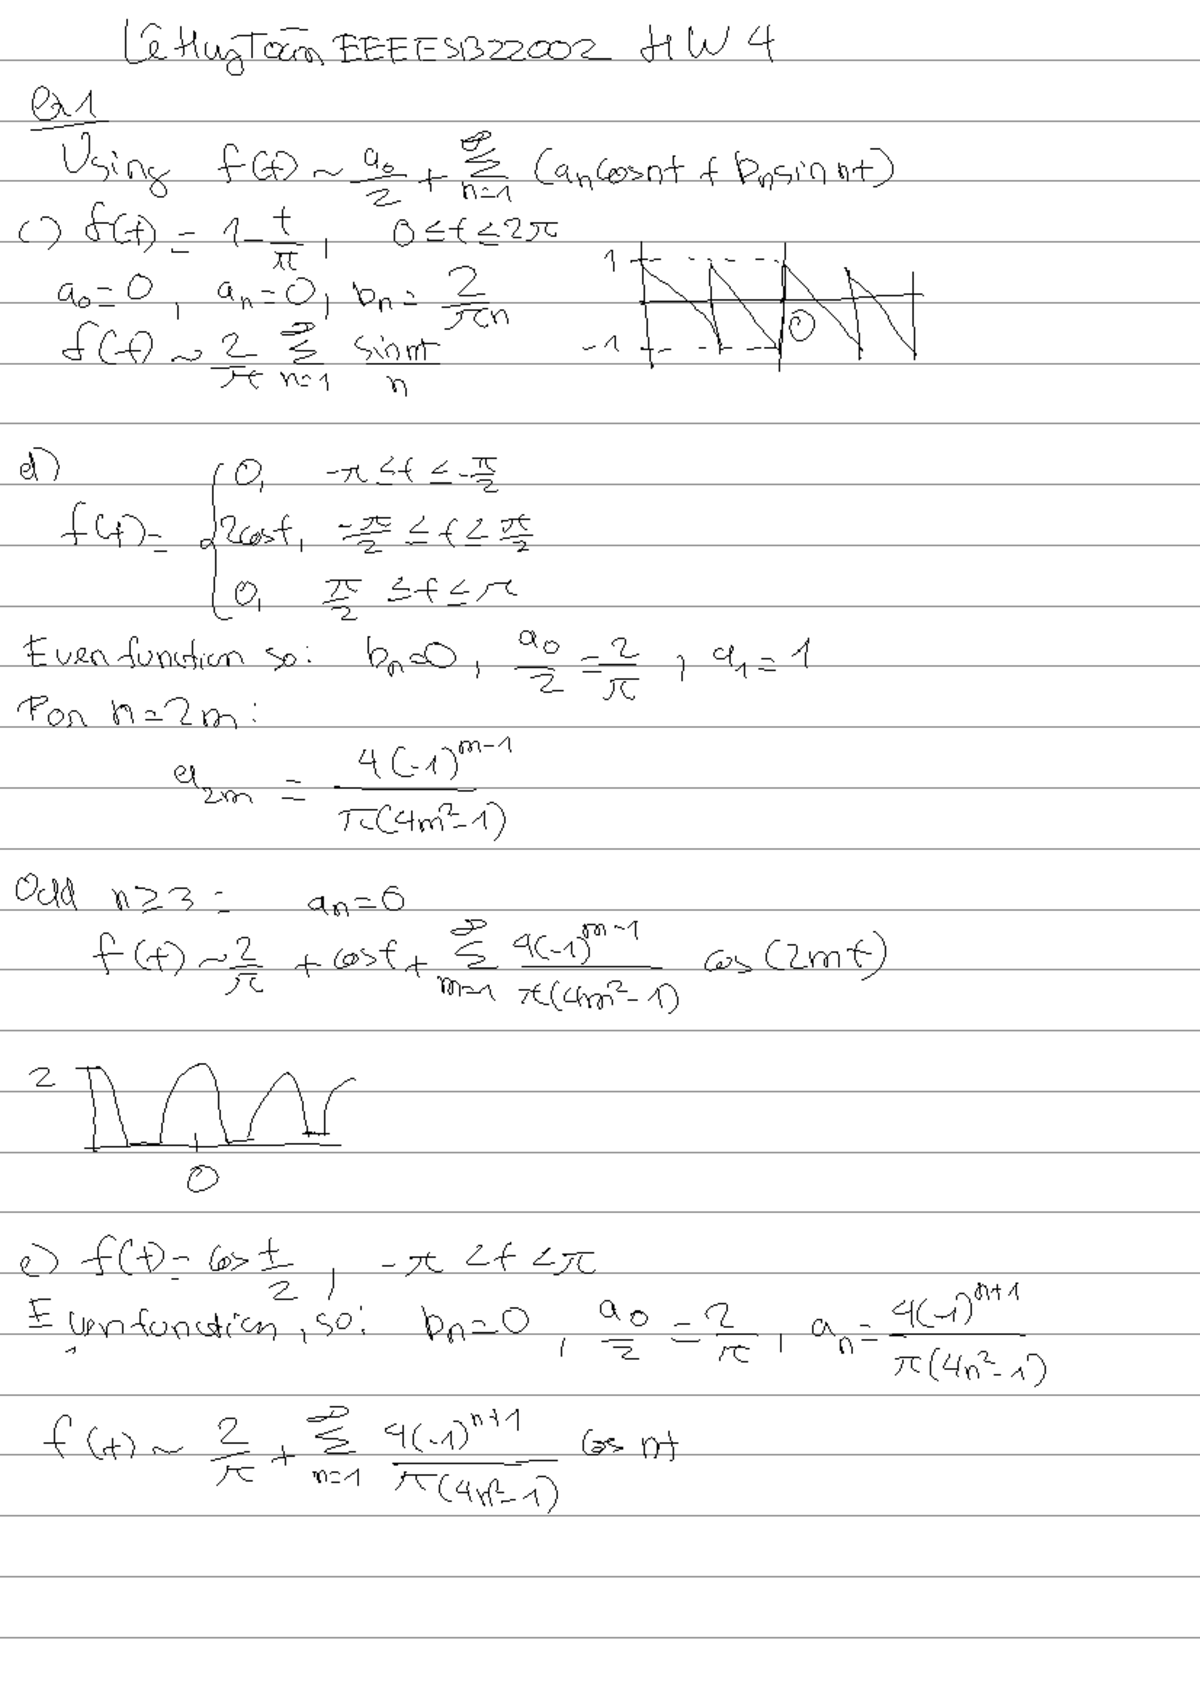 Lê Huy Toàn EEEESB22002 HW 4
Ex1
Using f(t) ~ a₀/2 + Σ_{n=1}^{∞} (aₙ cos nt + bₙ sin nt)
c) f(t) = 1 - t/π, 0 ≤ t ≤ 2π
a₀ = 0, aₙ = 0, bₙ = 2/(πn)
f(t) ~ 2/π Σ_{n=1}^{∞} sin nt / n
1
0
-1
d)
f(t) = { 0, -π ≤ t ≤ -π/2
2cost, -π/2 ≤ t ≤ π/2
0, π/2 ≤ t ≤ π
Even function so: bₙ = 0, a₀/2 = 2/π, a₁ = 1
For n = 2m:
a_{2m} = 4(-1)^{m-1} / π(4m² - 1)
Odd n ≥ 3: aₙ = 0
f(t) ~ 2/π + cost + Σ_{m=1}^{∞} 4(-1)^{m-1} / π(4m² - 1) cos(2mt)
2
0
e) f(t) = cos t/2, -π < t < π
Even function, so: bₙ = 0, a₀/2 = 2/π, aₙ = 4(-1)^{n+1} / π(4n² - 1)
f(t) ~ 2/π + Σ_{n=1}^{∞} 4(-1)^{n+1} / π(4n² - 1) cos nt